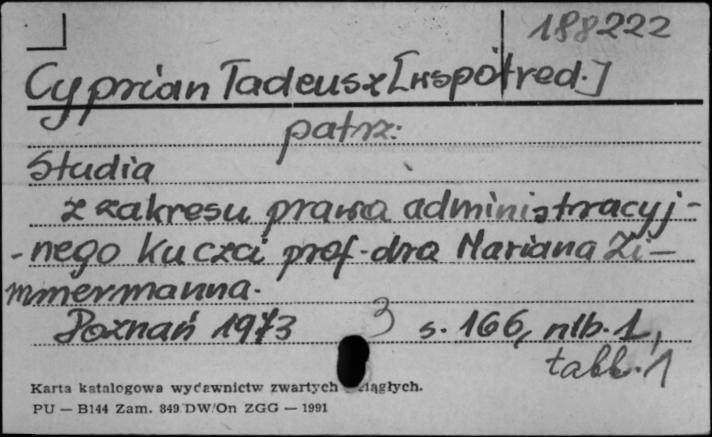 188222
Cyprian Tadeusz [współred.]
patrz:
Studia
z zakresu prawa administracyj-
-nego ku czci prof. dra Mariana Zi-
mmermanna.
Poznań 1973 3 s. 166, nlb. 1,
tabl. 1
Karta katalogowa wydawnictw zwartych ciągłych.
PU — B144 Zam. 849 DW/On ZGG — 1991